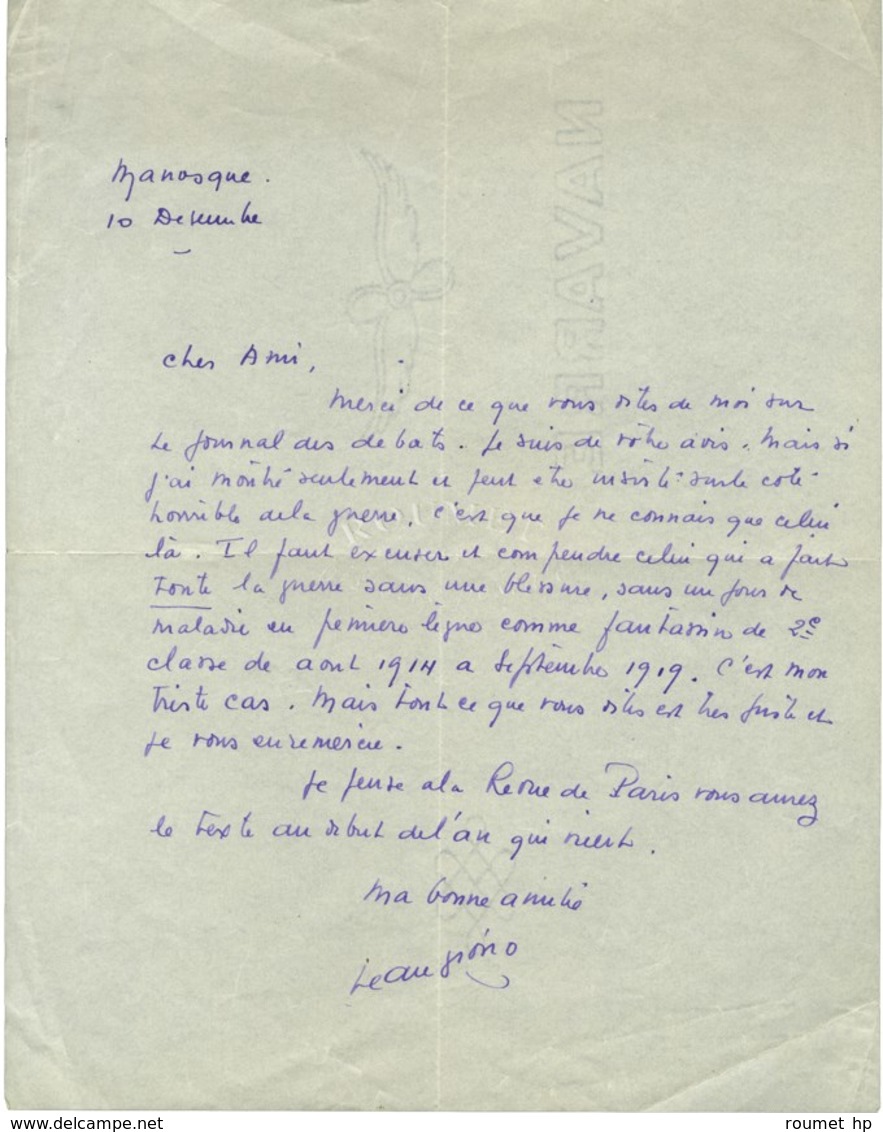 Manosque.
10 Decembre
Cher Ami,
Merci de ce que vous dites de moi sur
le Journal des debats. Je suis de votre avis. Mais si
j'ai montré seulement et peut etre insisté sur le coté
horrible de la guerre, c'est que je ne connais que celui
là. Il faut excuser et comprendre celui qui a fait
toute la guerre sans une blessure, sans un jour de
maladie en premiere ligne comme fantassin de 2e
classe de aout 1914 a Septembre 1919. C'est mon
triste cas. Mais tout ce que vous dites est tres juste et
je vous en remercie.
Je pense a la Revue de Paris vous aurez
le texte au debut de l'an qui vient.
Ma bonne amitié
Jean Giono
NAVARRE
roumet hp
delcampe.net